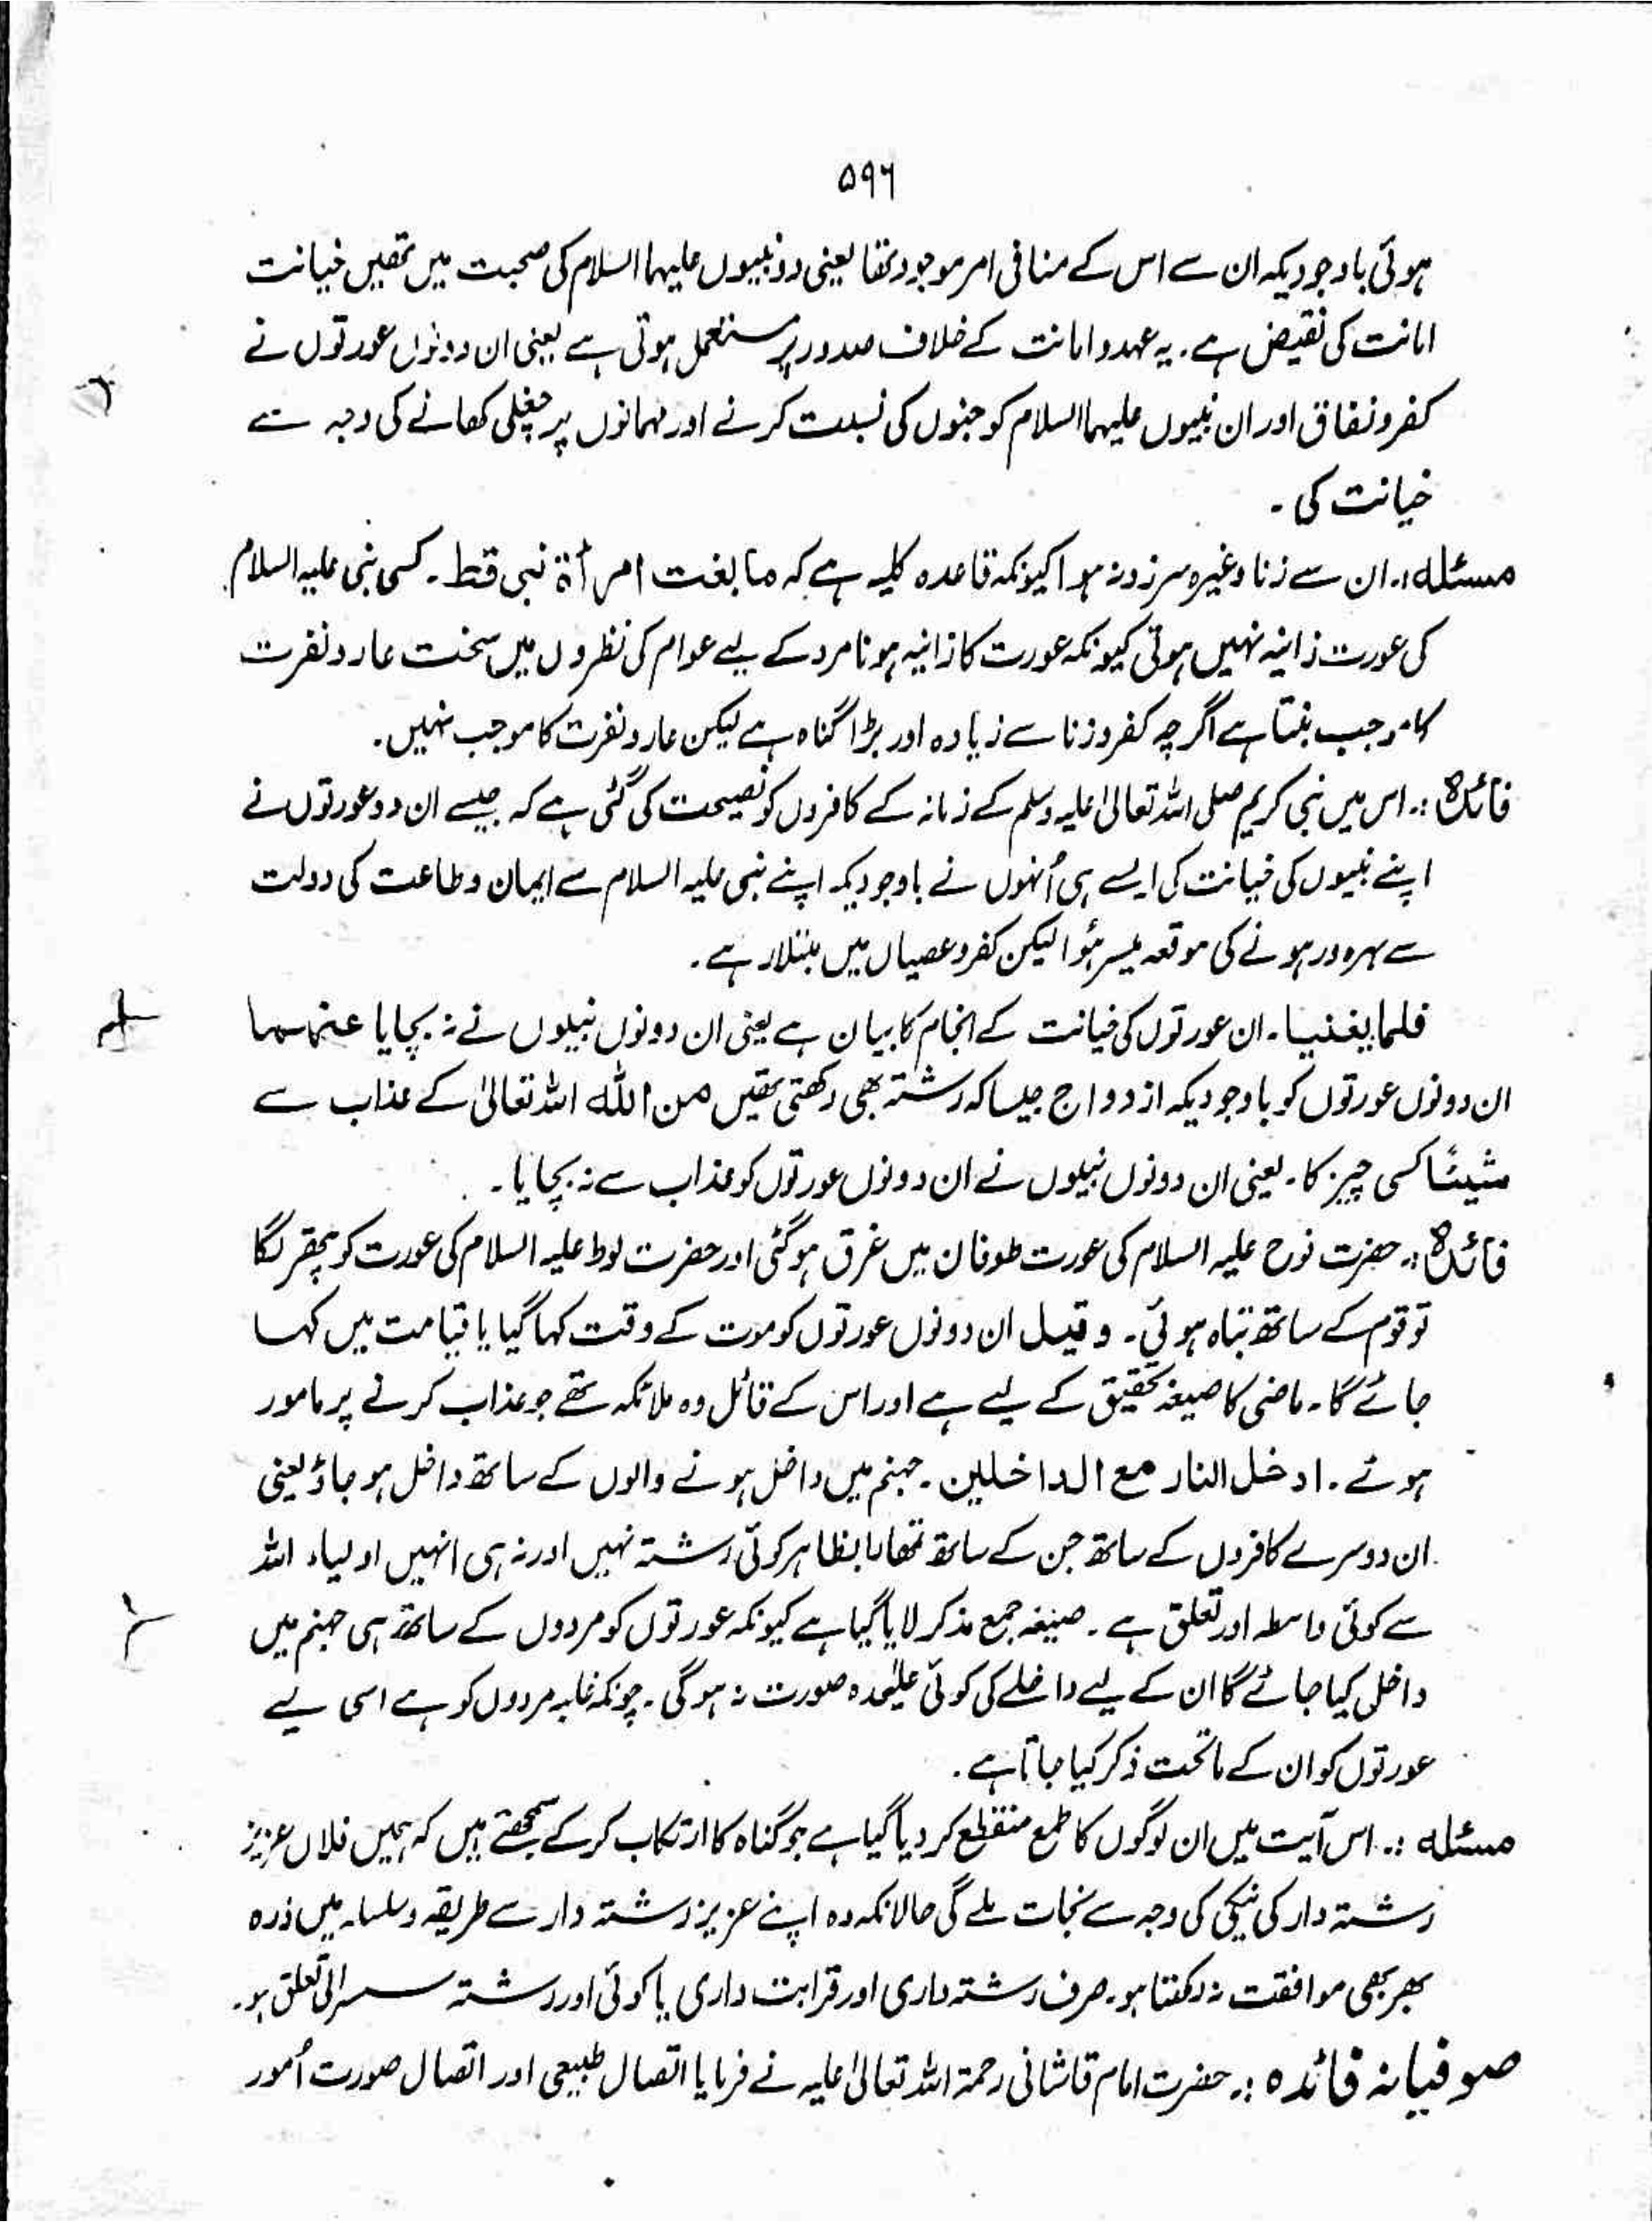 ۵۹۶
ہوئی باوجودیکہ ان سے اس کے منافی امر موجود تھا یعنی دو نبیوں علیہما السلام کی صحبت میں تھیں خیانت
امانت کی نقیض ہے۔ یہ عہد و امانت کے خلاف صدور پر مستعمل ہوتی ہے یعنی ان دونوں عورتوں نے
کفر و نفاق اور ان نبیوں علیہما السلام کو جنوں کی نسبت کرنے اور مہمانوں پر چغلی کھانے کی وجہ سے
خیانت کی۔
مسئلہ:۔ ان سے زنا وغیرہ سرزد نہ ہوا کیونکہ قاعدہ کلیہ ہے کہ ما بغت امرأۃ نبی قط۔ کسی نبی علیہ السلام
کی عورت زانیہ نہیں ہوتی کیونکہ عورت کا زانیہ ہونا مرد کے لیے عوام کی نظروں میں سخت عار و نفرت
کا موجب بنتا ہے اگرچہ کفر و زنا سے زیادہ اور بڑا گناہ ہے لیکن عار و نفرت کا موجب نہیں۔
فائدہ:۔ اس میں نبی کریم صلی اللہ تعالیٰ علیہ وسلم کے زمانہ کے کافروں کو نصیحت کی گئی ہے کہ جیسے ان دو عورتوں نے
اپنے نبیوں کی خیانت کی ایسے ہی اُنہوں نے باوجودیکہ اپنے نبی علیہ السلام سے ایمان و طاعت کی دولت
سے بہرہ ور ہونے کی موقعہ میسر ہُوا لیکن کفر و عصیاں میں مبتلا رہے۔
فلم یغنیا۔ ان عورتوں کی خیانت کے انجام کا بیان ہے یعنی ان دونوں نبیوں نے نہ بچایا عنہما
ان دونوں عورتوں کو باوجودیکہ ازدواج جیسا کہ رشتہ بھی رکھتی تھیں من اللہ اللہ تعالیٰ کے عذاب سے
شیئًا کسی چیز کا۔ یعنی ان دونوں نبیوں نے ان دونوں عورتوں کو عذاب سے نہ بچایا۔
فائدہ:۔ حضرت نوح علیہ السلام کی عورت طوفان میں غرق ہو گئی اور حضرت لوط علیہ السلام کی عورت کو پتھر لگا
تو قوم کے ساتھ تباہ ہوئی۔ وقیل ان دونوں عورتوں کو موت کے وقت کہا گیا یا قیامت میں کہا
جائے گا۔ ماضی کا صیغہ تحقیق کے لیے ہے اور اس کے قائل وہ ملائکہ تھے جو عذاب کرنے پر مامور
ہوئے۔ ادخل النار مع الداخلین۔ جہنم میں داخل ہونے والوں کے ساتھ داخل ہو جاؤ یعنی
ان دوسرے کافروں کے ساتھ جن کے ساتھ تمھارا بظاہر کوئی رشتہ نہیں اور نہ ہی انہیں اولیاء اللہ
سے کوئی واسطہ اور تعلق ہے۔ صیغہ جمع مذکر لایا گیا ہے کیونکہ عورتوں کو مردوں کے ساتھ ہی جہنم میں
داخل کیا جائے گا ان کے لیے داخلے کی کوئی علیٰحدہ صورت نہ ہو گی۔ چونکہ غلبہ مردوں کو ہے اسی لیے
عورتوں کو ان کے ماتحت ذکر کیا جاتا ہے۔
مسئلہ:۔ اس آیت میں ان لوگوں کا طمع منقطع کر دیا گیا ہے جو گناہ کا ارتکاب کر کے سمجھتے ہیں کہ ہمیں فلاں عزیز
رشتہ دار کی نیکی کی وجہ سے نجات ملے گی حالانکہ وہ اپنے عزیز رشتہ دار سے طریقہ و سلسلہ میں ذرہ
بھر بھی موافقت نہ رکھتا ہو۔ صرف رشتہ داری اور قرابت داری یا کوئی اور رشتہ سسرالی تعلق ہو۔
صوفیانہ فائدہ:۔ حضرت امام قاشانی رحمۃ اللہ تعالیٰ علیہ نے فرمایا اتصال طبیعی اور اتصال صورت اُمور